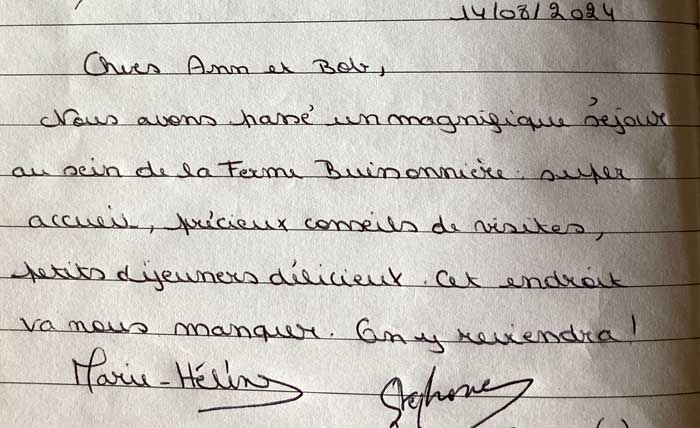 14/08/2024
Chers Ann et Bob,
Nous avons passé un magnifique séjour
au sein de la Ferme Buissonnière : super
accueil, précieux conseils de visites,
petits déjeuners délicieux. Cet endroit
va nous manquer. On y reviendra !
Marie-Hélène Stéphane